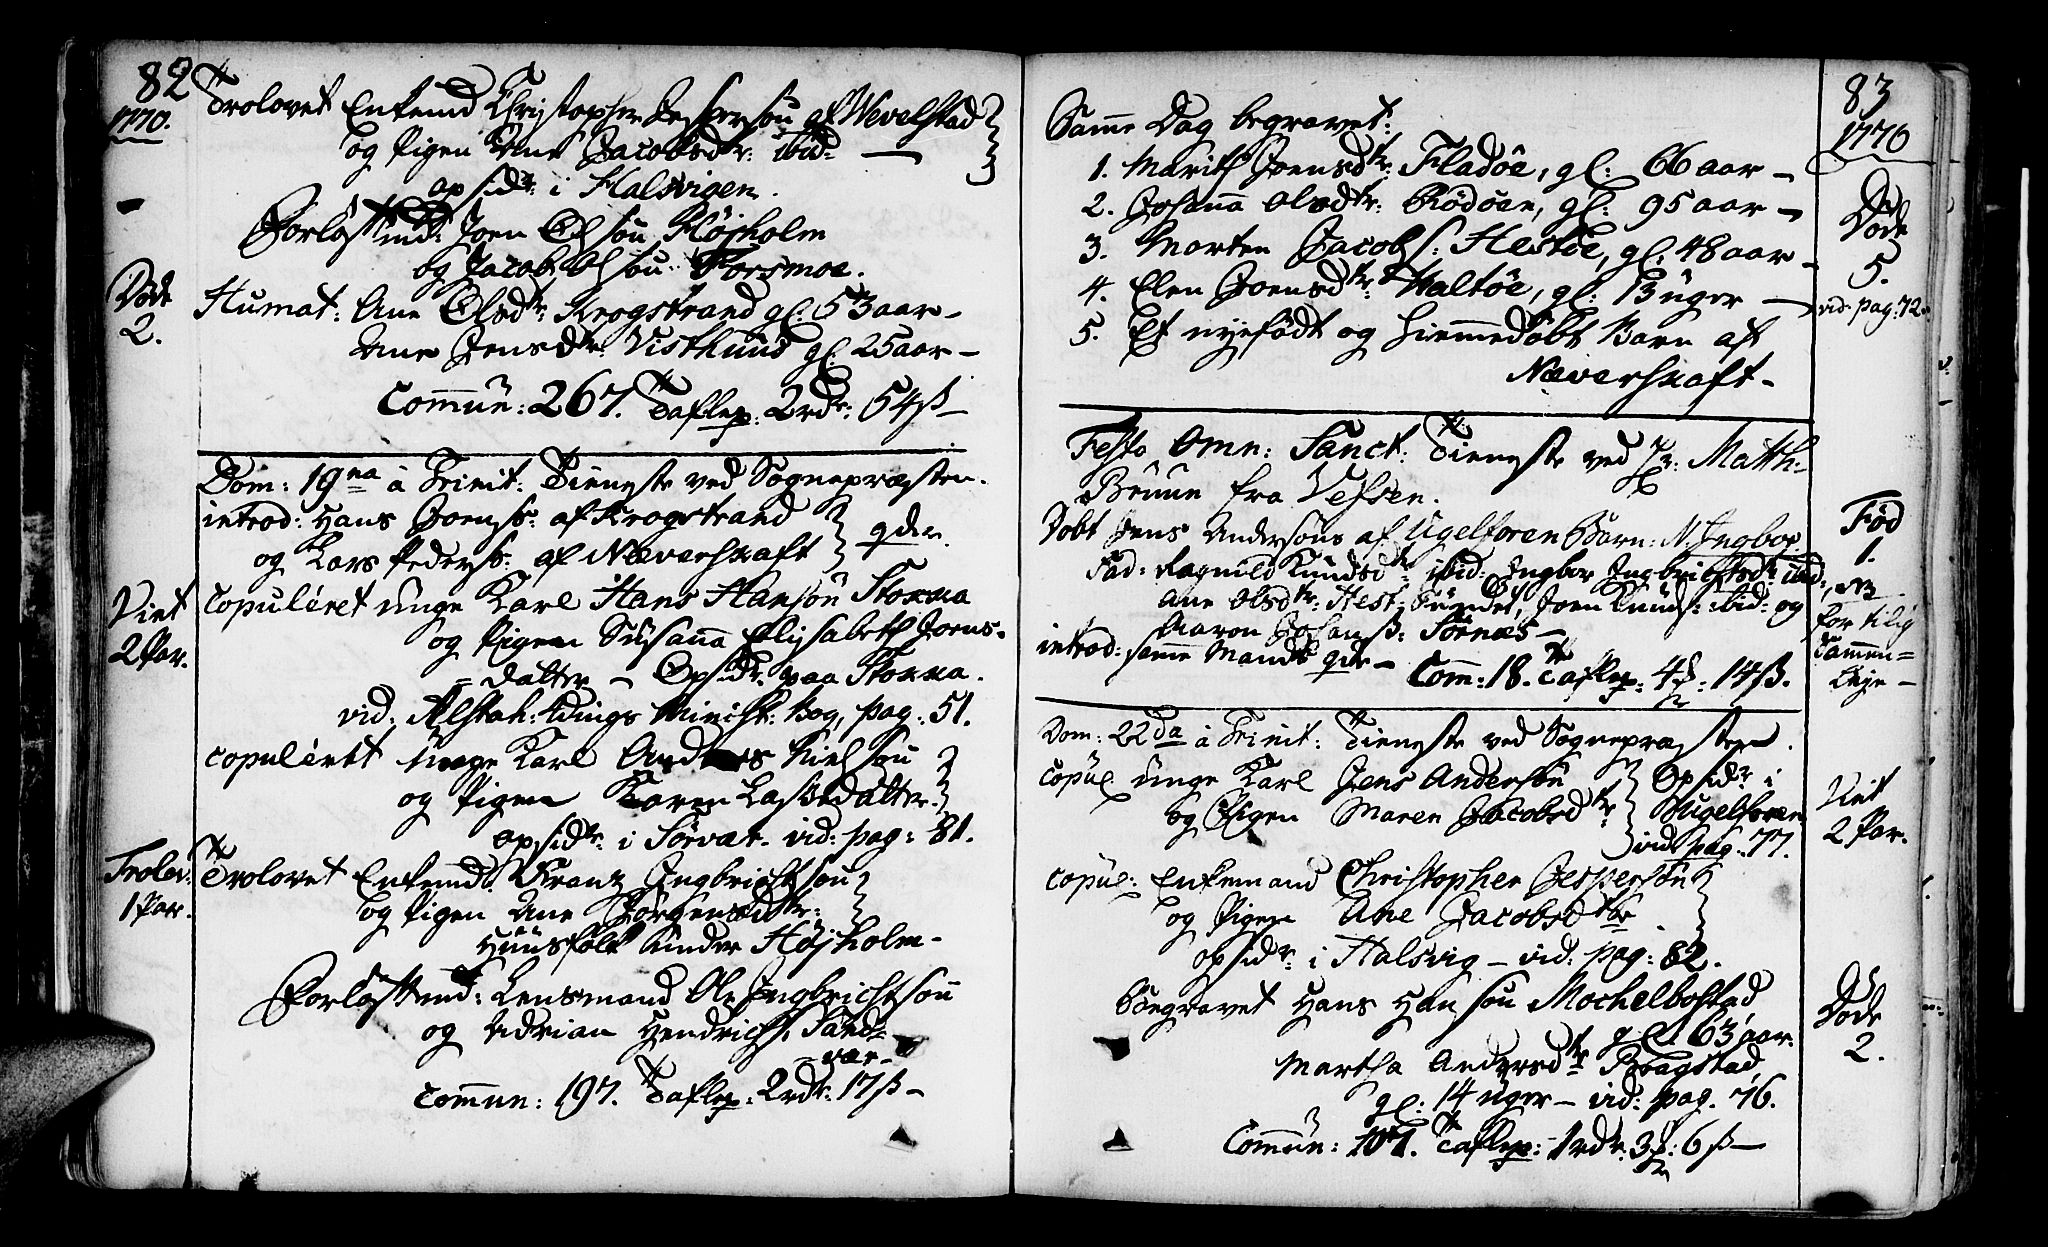 82
1770.
Trolovet Enkemd Christopher Jespersøn af Wevelstad
og Pigen Ane Jacobsdtr: ibid:
opsidr: i Halsvigen.
Forløftmd: Joen Olsøn Højholm
og Jacob Olsøn Forsmoe.
Døde
2.
Humat: Ane Olsdtr: Krogstrand gl: 53 aar –
Ane Jensdtr: Visthuus gl: 25 aar –
Commun: 267. Taflep: 2 rdr: 54 ß –
Dom: 19na à Trinit: Tieneste ved Sognepræsten.
introd: Hans Joenss: af Krogstrand
og Lars Pederss: af Næverskaft } qder.
Viet
2 Par.
Copuleret unge Karl Hans Hansøn Stokka
og Pigen Susanna Elisabeth Joens-
= datter – Opsidr: paa Stokka.
vid: Alstah: Tdings Minist: Bog, pag: 51.
copuleret unge Karl Andreas Nielsøn
og Pigen Karen Lassedatter.
opsidr: i Sørvær. vid: pag: 81.
Trolov:
1 Par.
Trolovet Enkemd: Franz Ingbrichtsøn
og Pigen Ane Jørgensdtr:
Huusfolk under Højholm –
Forløftmd: Lensmand Ole Ingbrichtsøn
og Adrian Hendrichs: Sand=
= vær –
Commun: 197. Taflep: 2 rdr: 17 ß –
83
1770
Samme Dag begravet:
1. Marith Joensdtr: Fladøe, gl: 66 aar –
2. Johanna Olsdtr: Rødøen, gl: 95 aar –
3. Morten Jacobs: Hestøe, gl: 48 aar –
4. Elen Joensdtr: Haltøe, gl: 13 uger –
5. Et nyefødt og hiemmedøbt Barn af
Næverskaft –
Døde
5.
vid. pag: 72.
Festo Omn: Sanct: Tieneste ved Hr: Matth:
Bruun fra Vefsen.
Døbt Jens Andersøns af Ugelforen Barn: N. Ingbor
Fad: Ragnild Knudsdtr: ibid: Ingbor Ingbrichtsdtr: ibid:
Ane Olsdtr: Hestsundet, Joen Knuds: ibid: og
Aaron Johanß: Sørnæs –
introd: samme Mands qde – Com: 18. Taflep: 4 ½: 14 ß.
Fød
1.
NB
for tilig
Sammen=
Leje –
Dom: 22da à Trinit: Tieneste ved Sognepræsten.
copul unge Karl Jens Andersøn
og Pigen Maren Jacobsdtr } Opsidr: i
Hugelforen
vid: pag: 77.
Viet
2 Par.
copul: Enkemand Christopher Jespersøn
og Pigen Ane Jacobsdtr
opsidr: i Halsvig – vid: pag: 82.
Begravet Hans Hansøn Mochelbostad
gl: 63 aar.
Martha Andersdtr Foragstad,
gl: 14 uger – vid: pag. 76.
Døde
2.
Commun: 107. Taflep: 1 rdr: 3 ½: 6 ß –